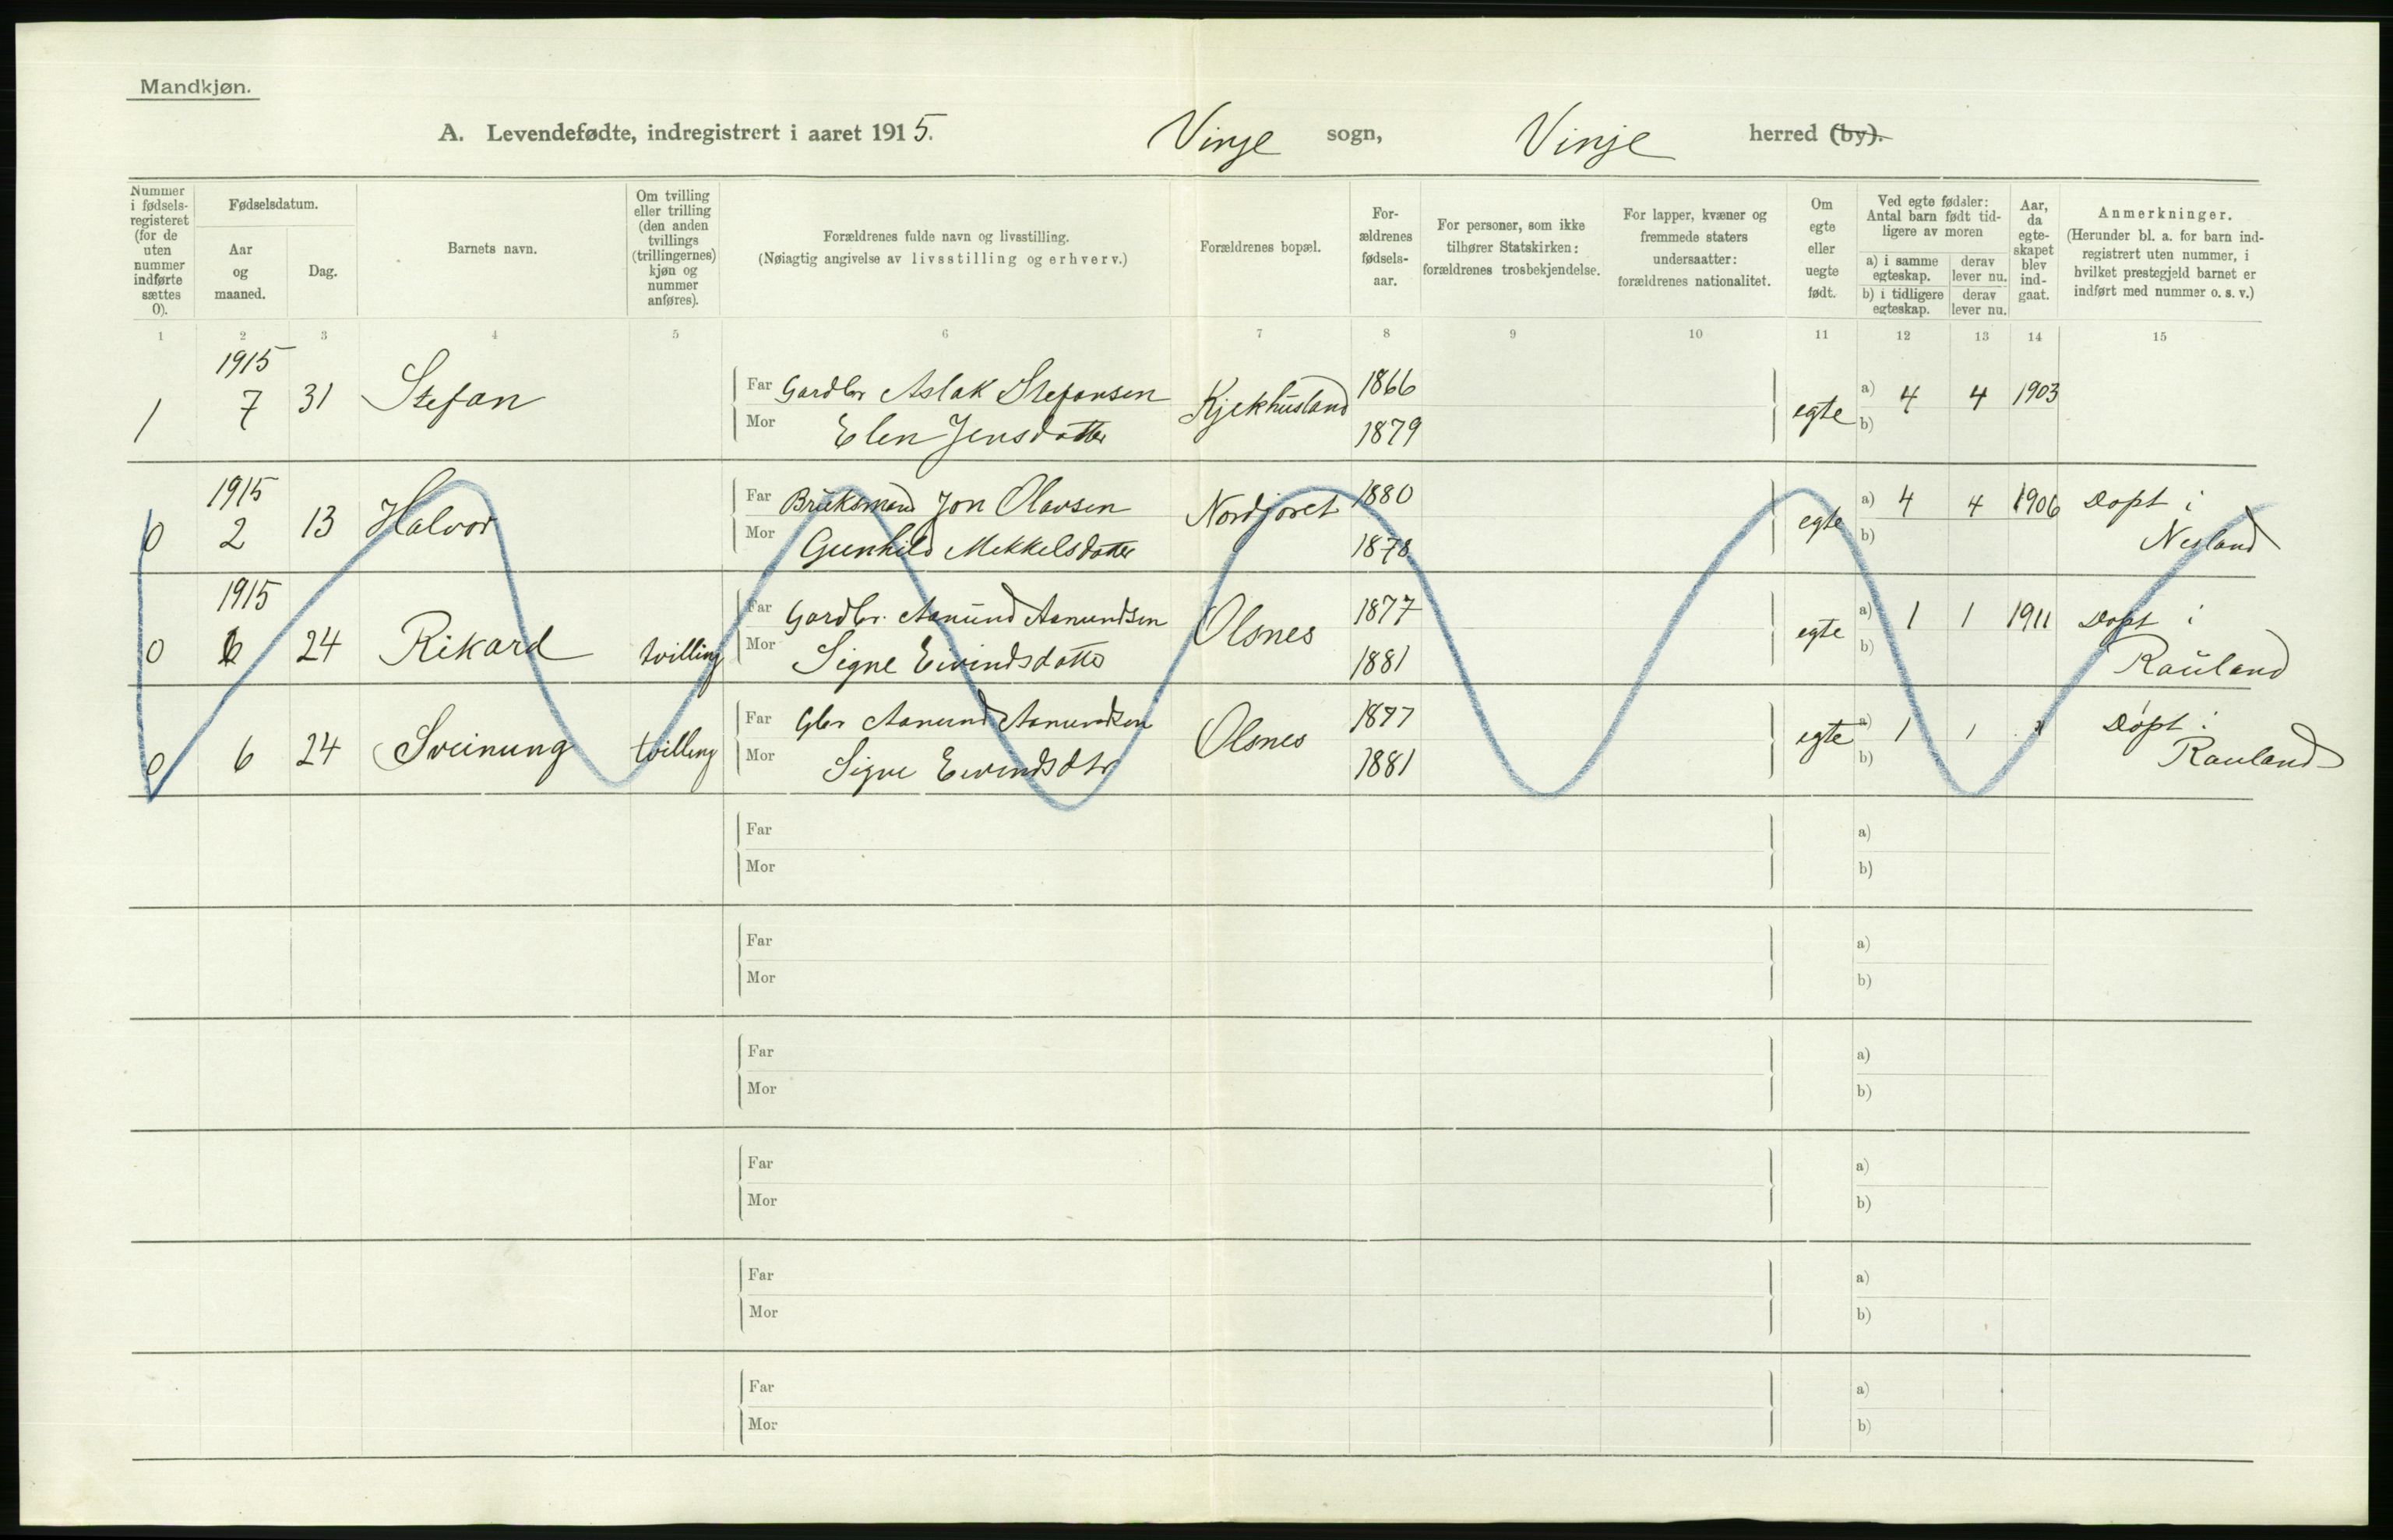 Mandkjøn.
A. Levendefødte, indregistrert i aaret 1915. Vinje sogn, Vinje herred (by).
Nummer i fødsels-registeret (for de uten nummer indførte sættes 0).
Fødselsdatum.
Aar og maaned.
Dag.
Barnets navn.
Om tvilling eller trilling (den anden tvillings (trillingernes) kjøn og nummer anføres).
Forældrenes fulde navn og livsstilling.
(Nøiagtig angivelse av livsstilling og erhverv.)
Forældrenes bopæl.
For-ældrenes fødsels-aar.
For personer, som ikke tilhører Statskirken: forældrenes trosbekjendelse.
For lapper, kvæner og fremmede staters undersaatter: forældrenes nationalitet.
Om egte eller uegte født.
Ved egte fødsler: Antal barn født tid-ligere av moren
a) i samme egteskap. derav lever nu.
b) i tidligere egteskap. derav lever nu.
Aar, da egte-skapet blev ind-gaat.
Anmerkninger.
(Herunder bl. a. for barn ind-registrert uten nummer, i hvilket prestegjeld barnet er indført med nummer o. s. v.)
1 2 3 4 5 6 7 8 9 10 11 12 13 14 15
1915
1 7 31 Stefan Far Gardbr Aslak Stefansen Kjekhusland 1866 egte a) 4 4 1903
Mor Elen Jensdatter 1879 b)
1915
0 2 13 Halvor Far Bruksmand Jon Olavsen Nordjoret 1880 egte a) 4 4 1906 Døpt i
Mor Gunhild Mekkelsdatter 1878 b) Nesland
1915
0 6 24 Rikard tvilling Far Gardbr. Aamund Aamundsen Olsnes 1877 egte a) 1 1 1911 Døpt i
Mor Signe Eivindsdatte 1881 b) Rauland
0 6 24 Sveinung tvilling Far Gbr Aamund Aamundsen Olsnes 1877 egte a) 1 1 Døpt i
Mor Signe Eivindsdtr 1881 b) Rauland
Far a)
Mor b)
Far a)
Mor b)
Far a)
Mor b)
Far a)
Mor b)
Far a)
Mor b)
Far a)
Mor b)